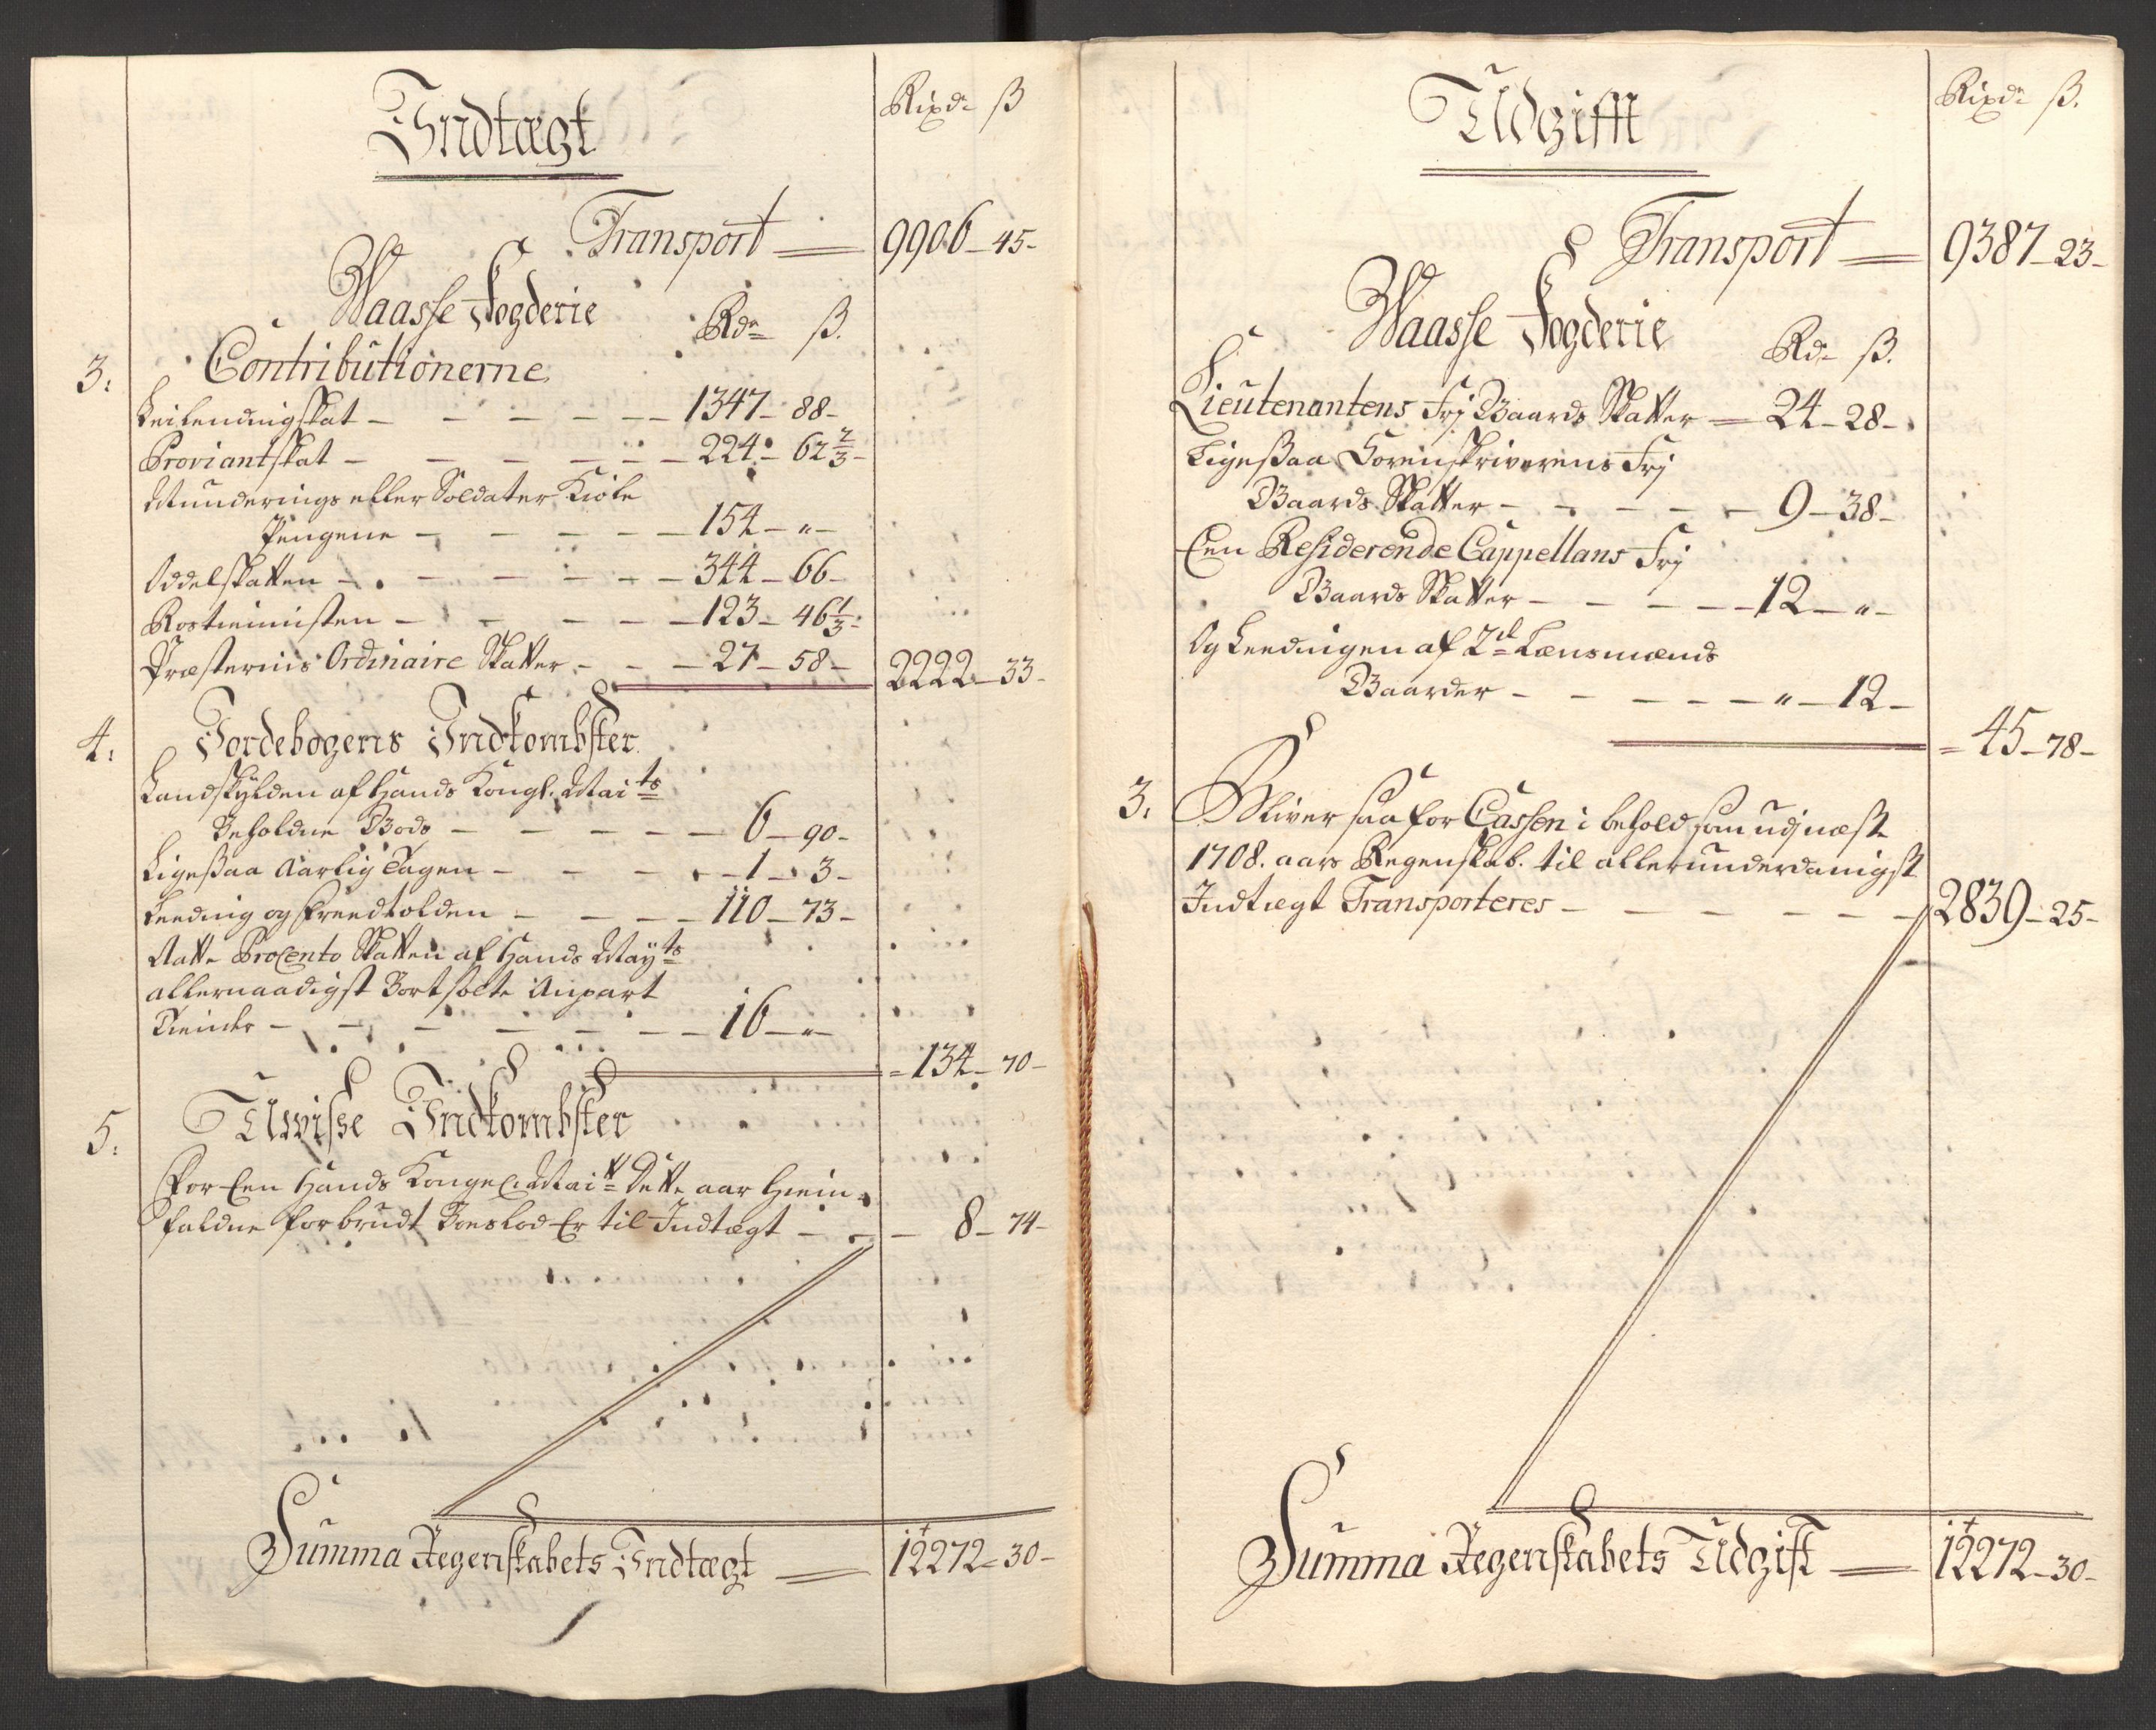 Indtægt
Rixdr ß
Transport 9906 - 45 -
Waasse Fogderie
Rdr ß.
3. Contributionerne
Leilendingskat - 1347 - 88 -
Proviantskat - 224 - 62 2/3 -
Munderings eller Soldater Kiole
Pengene - 154 - " -
Oddelskatten - 344 - 66 -
Rostienisten - 123 - 46 1/3
Præsternis Ordinaire Skatter - 27 - 58 - 2222 - 33 -
4. Jordebogens Indkombster
Landskylden af Hands Kongl. Maits
Beholdne Gods - 6 - 90 -
Ligeßaa Aarlig Tagen - 1 - 3 -
Leeding og Freedtolden - 110 - 73 -
Procento Skatten af Hands Mayts
allernaadigst Bortsolte Anpart
Tiender - 16 - " -
134 - 70 -
5. Uwisse Indkombster
For Een Hands Kongel Maitt Dette aar Hiem
faldne forbrudt Boeslod Er til Indtægt - 8 - 74 -
Summa Regenskabets Indtægt 12272 - 30 -
Udgifft
Rixdr ß.
Transport 9387 - 23 -
Waasse Fogderie
Rdr ß.
Lieutenantens Frj Gaards Skatter 24 - 28 -
Ligeßaa Sorenskriverens Frj
Gaards Skatter - 9 - 38 -
Een Residerende Cappellans Frj
Gaards Skatter - 12 - " -
Og Leedingen af 2de Lænsmænds
Gaarder - " - 12 -
45 - 78 -
3. Bliver saa for Cassen i behold som udj næst
1708. aars Regenskab. til allerunderdanigst
Indtægt Transporteres - 2839 - 25 -
Summa Regenskabets Udgift 12272 - 30 -